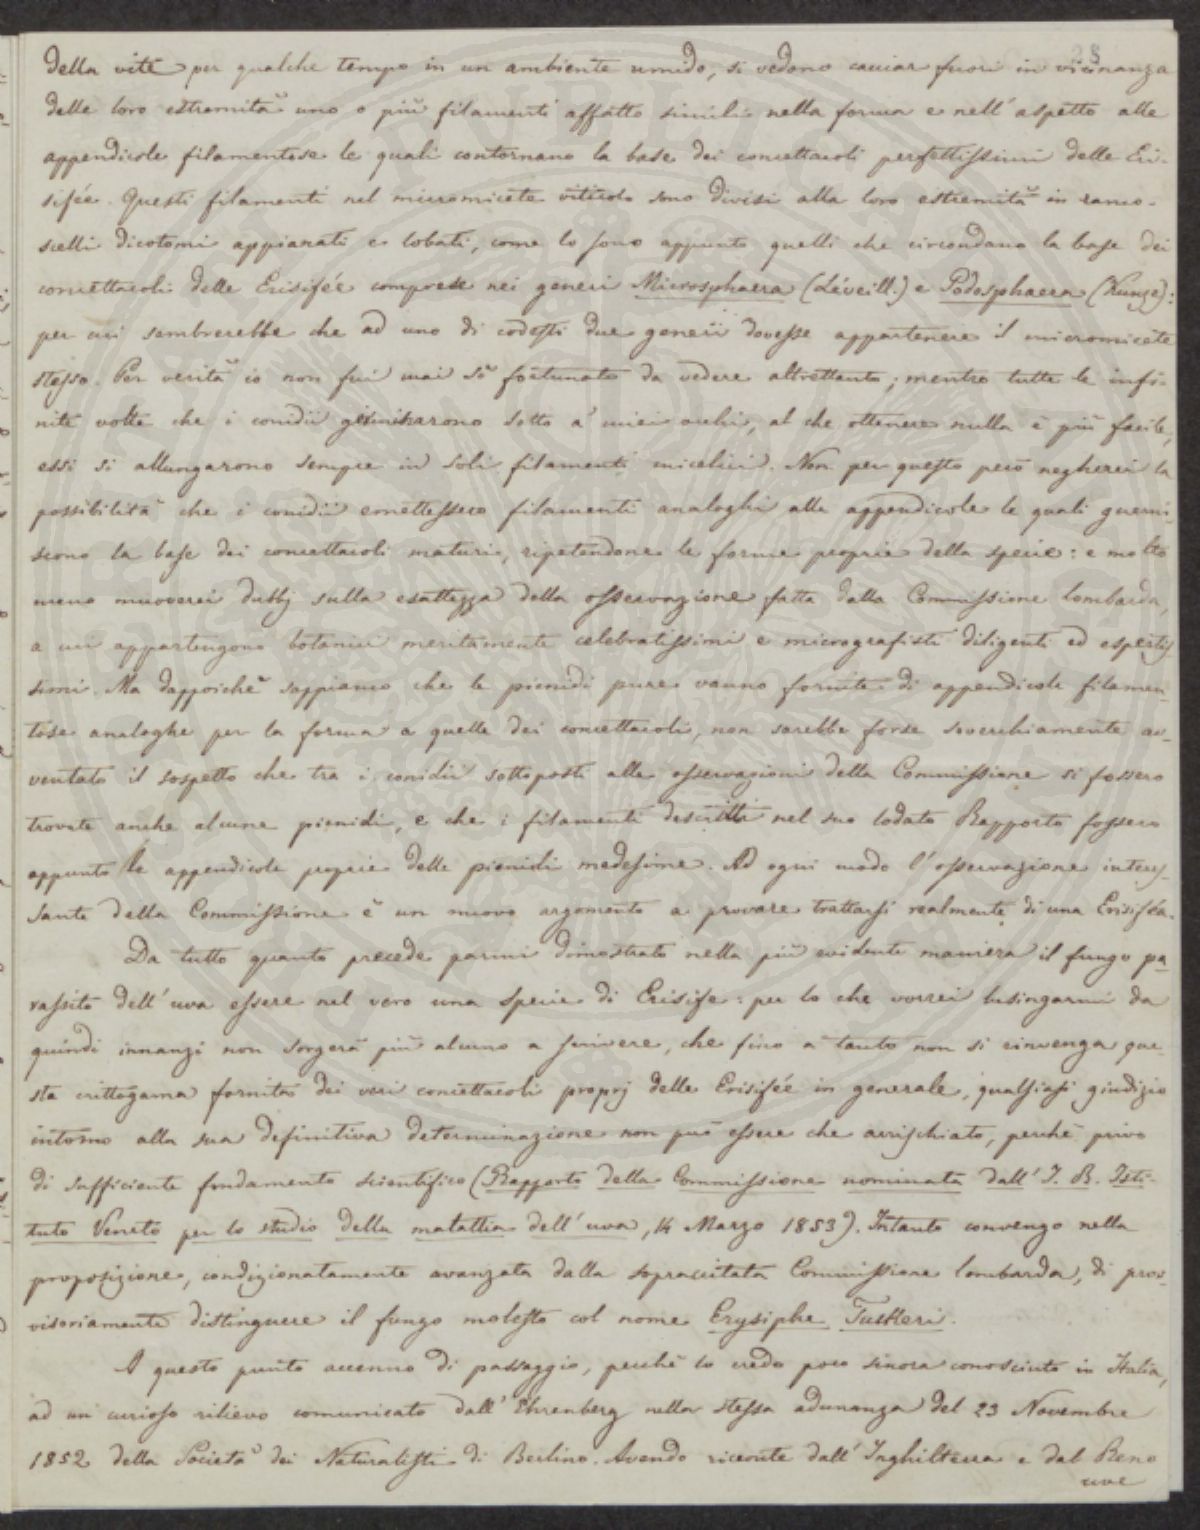 28
della vite per qualche tempo in un ambiente umido, si vedono cacciar fuori in vicinanza
delle loro estremità uno o più filamenti affatto simili nella forma e nell'aspetto alle
appendicole filamentose le quali contornano la base dei concettacoli perfettissimi delle Eri-
sifée. Questi filamenti nel micromicete viticolo sono divisi alla loro estremità in ramo-
scelli dicotomi appianati e lobati, come lo sono appunto quelli che circondano la base dei
concettacoli delle Erisifée comprese nei generi Microsphaera (Léveill.) e Podosphaera (Kunze):
per cui sembrerebbe che ad uno di codesti due generi dovesse appartenere il micromicete
stesso. Per verità io non fui mai sì fortunato da vedere altrettanto; mentre tutte le infi-
nite volte che i conidii germinarono sotto a' miei occhi, al che ottenere nulla è più facile,
essi si allungarono sempre in soli filamenti micelici. Non per questo però negherei la
possibilità che i conidii emettessero filamenti analoghi alle appendicole le quali guerni-
scono la base dei concettacoli maturi, ripetendone le forme proprie della specie: e molto
meno muoverei dubbj sulla esattezza della osservazione fatta dalla Commissione lombarda,
a cui appartengono botanici meritamente celebratissimi e micrografisti diligenti ed espertis-
simi. Ma dappoichè sappiamo che le picnidi pure vanno fornite di appendicole filamen-
tose analoghe per la forma a quelle dei concettacoli, non sarebbe forse soverchiamente av-
ventato il sospetto che tra i conidii sottoposti alle osservazioni della Commissione si fossero
trovate anche alcune picnidi, e che i filamenti descritti nel suo lodato Rapporto fossero
appunto le appendicole proprie delle picnidi medesime. Ad ogni modo l'osservazione interes-
sante della Commissione è un nuovo argomento a provare trattarsi realmente di una Erisiféa.
Da tutto quanto precede parmi dimostrato nella più evidente maniera il fungo pa-
rassito dell'uva essere nel vero una specie di Erisife: per lo che vorrei lusingarmi da
quindi innanzi non sorgerà più alcuno a scrivere, che fino a tanto non si rinvenga que-
sta crittogama fornita dei veri concettacoli proprj delle Erisifée in generale, qualsiasi giudizio
intorno alla sua definitiva determinazione non può essere che arrischiato, perchè privo
di sufficiente fondamento scientifico (Rapporto della Commissione nominata dall' I. R. Isti-
tuto Veneto per lo studio della malattia dell'uva, 14 Marzo 1853). Intanto convengo nella
proposizione, condizionatamente avanzata dalla sopraccitata Commissione lombarda, di prov-
visoriamente distinguere il fungo molesto col nome Erysiphe Tuckeri.
A questo punto accenno di passaggio, perchè lo credo poco sinora conosciuto in Italia,
ad un curioso rilievo comunicato dall'Ehrenberg nella stessa adunanza del 23 Novembre
1852 della Società dei Naturalisti di Berlino. Avendo ricevute dall'Inghilterra e dal Reno
uve